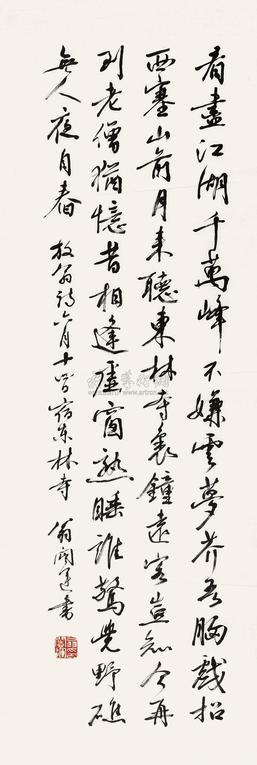 看盡江湖千萬峰不嫌雲夢芥吾胸戲招
西塞山前月來聽東林寺裏鐘遠客豈知今再
到老僧猶憶昔相逢虛窗熟睡誰驚覺野碓
無人夜自舂 放翁詩六月十四日宿東林寺 翁闿運書